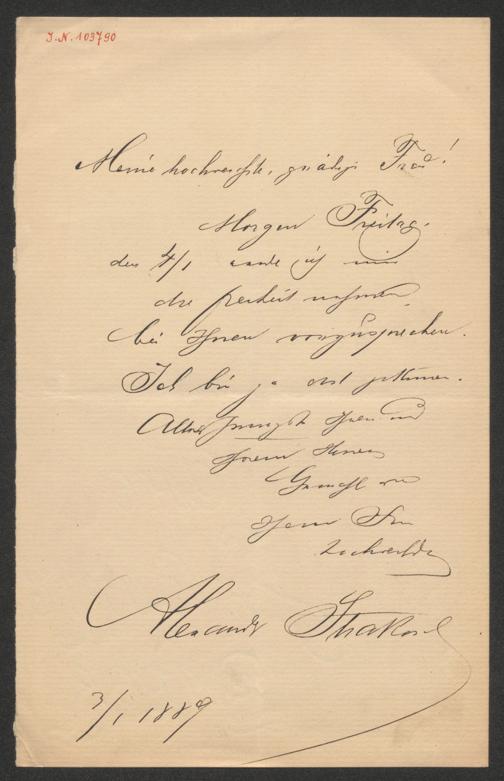 J.N. 103790
Meine hochverehrte, gnädige Frau!
Morgen Freitag,
den 4/1 werde ich mir
die Freiheit nehmen,
bei Ihnen vorzusprechen.
Ich bin ja erst gekommen.
Ihnen und
Ihrem Herrn
Gemahl von
Ihrem Sie
hochverehrenden
Alexander Strakosch
3/1 1889